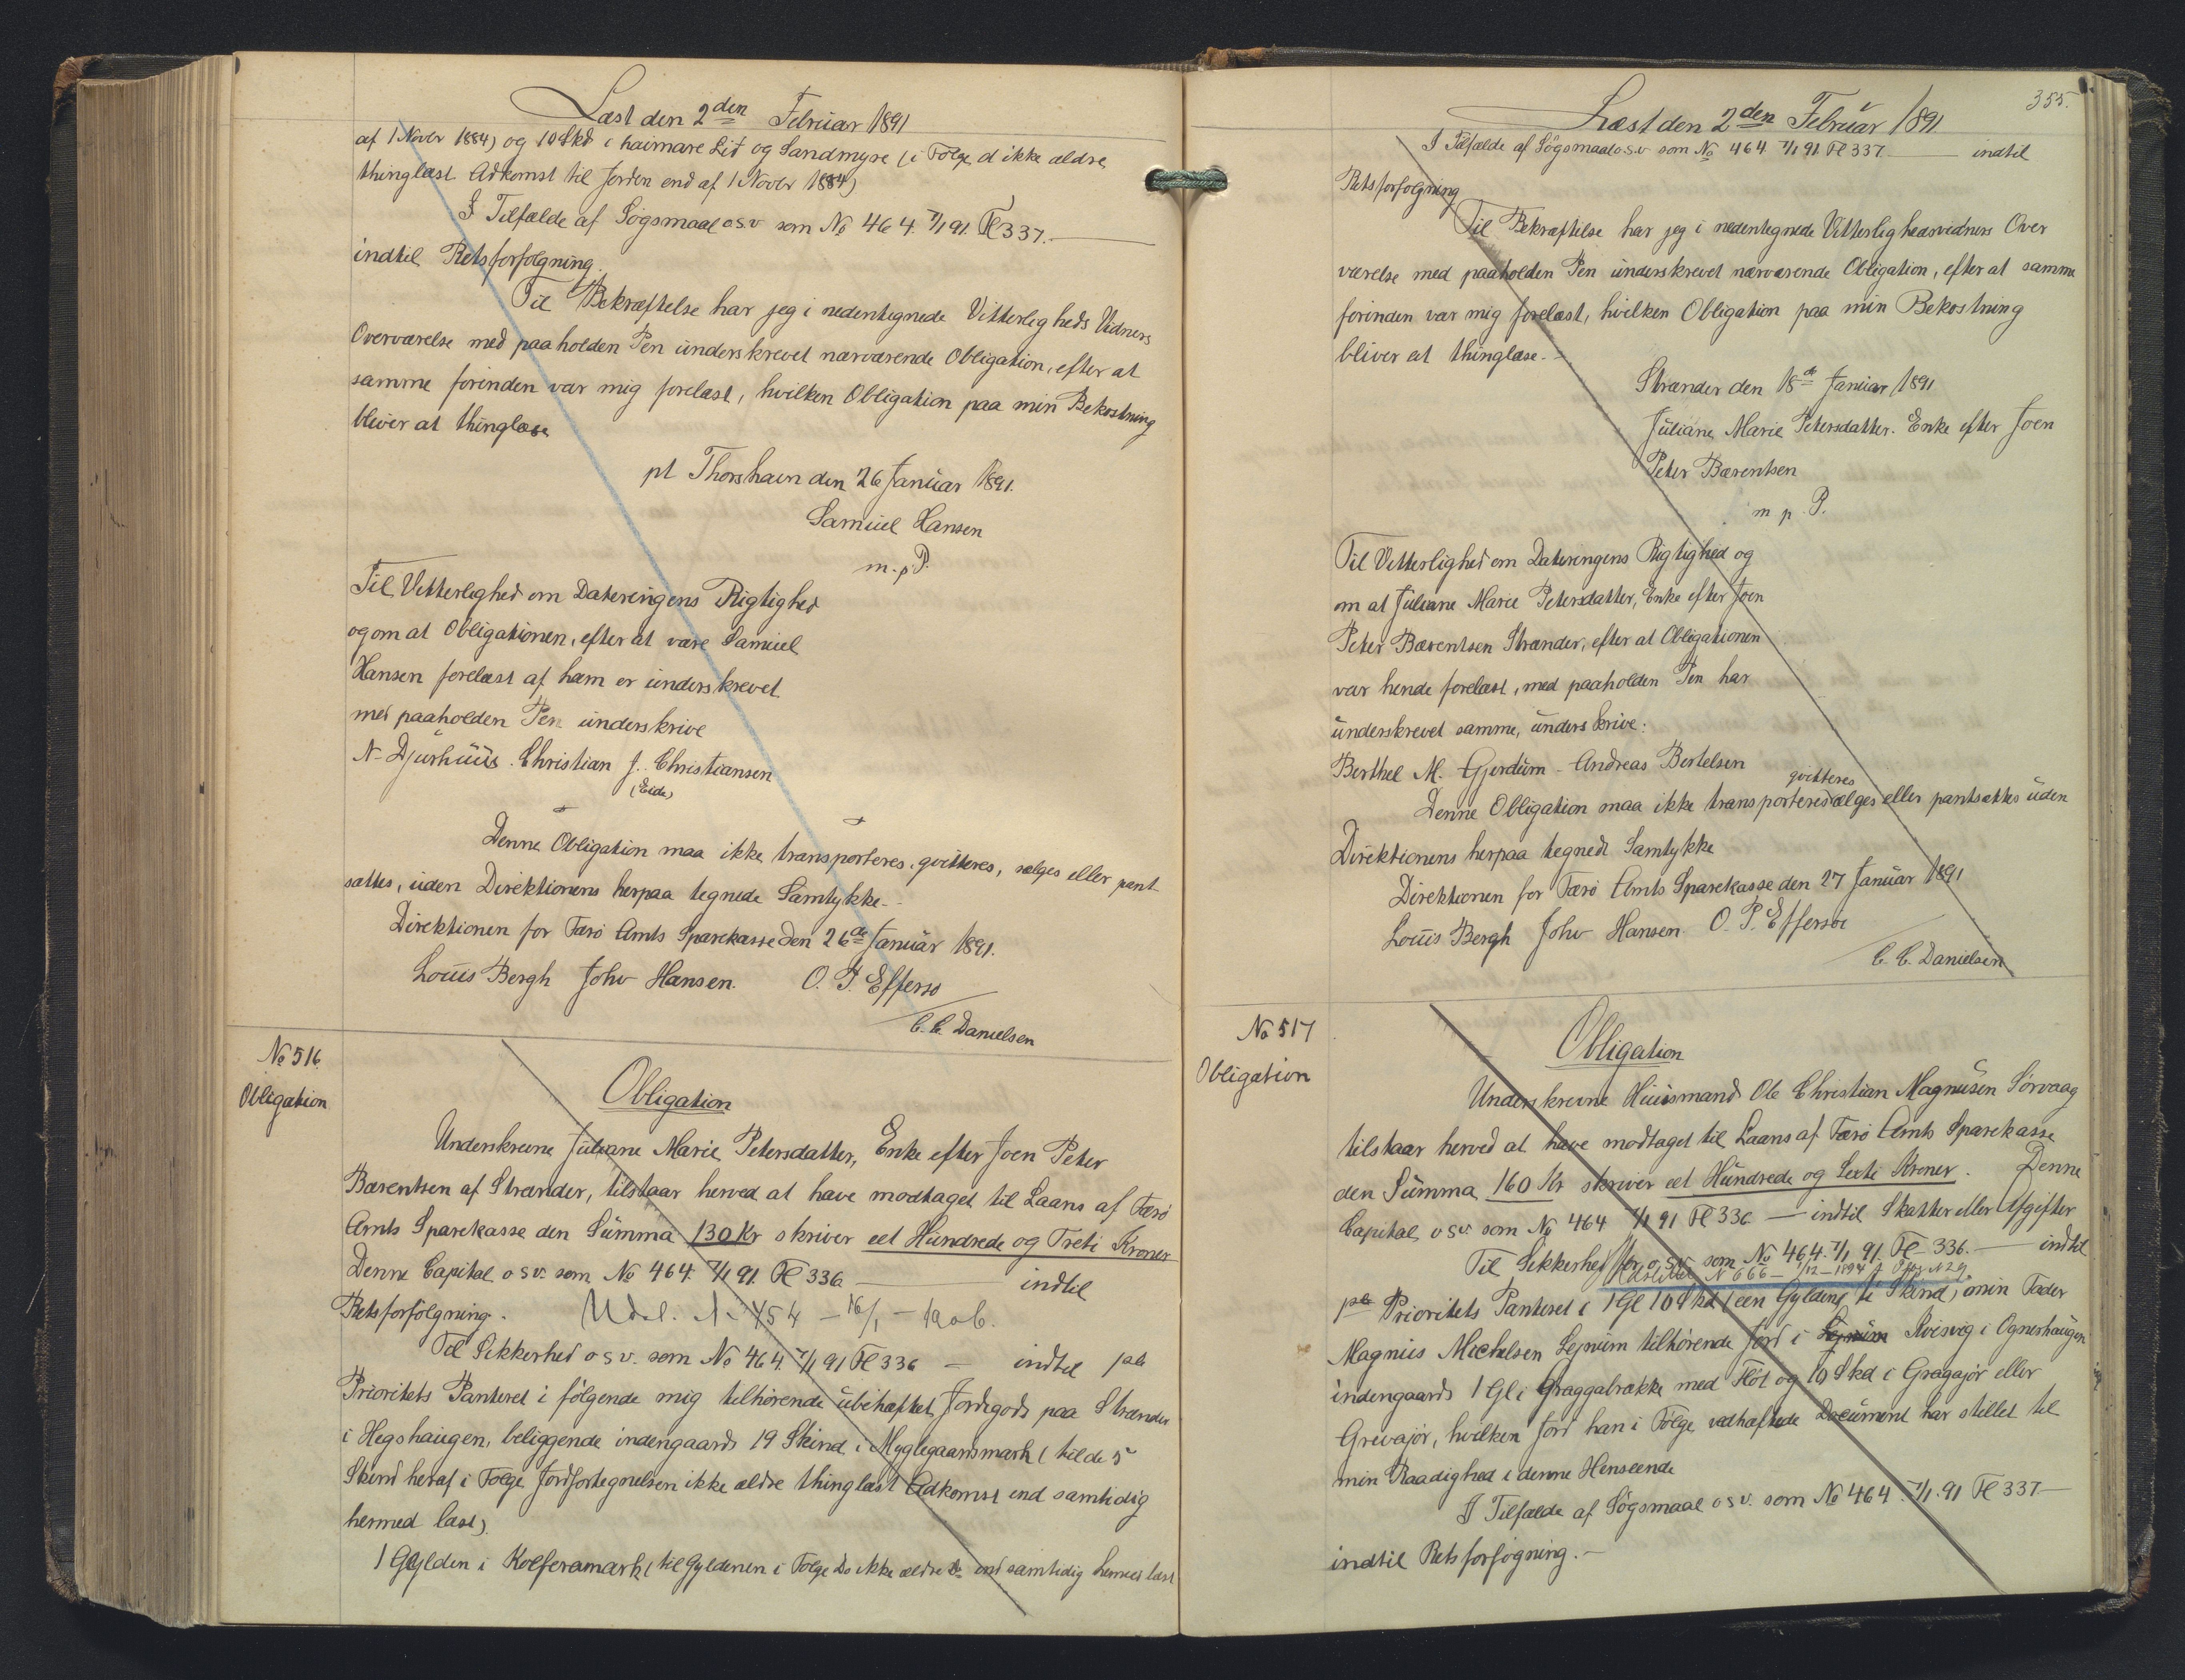 Læst den 2den Februar 1891
af 1 Novbr 1884) og 10 Skd i haimare Lit og Sandmyre (i Følge d ikke ældre
thinglæst Adkomst til Jorden end af 1 Novbr 1884)
I Tilfælde af Søgsmaal osv som No 464. 7/1 91. Fl 337.
indtil Retsforfølgning.
Til Bekræftelse har jeg i nedentegnede Vitterligheds Vidners
Overværelse med paaholden Pen underskrevet nærværende Obligation, efter at
samme forinden var mig forelæst, hvilken Obligation paa min Bekostning
bliver at thinglæse
pt Thorshavn den 26 Januar 1891.
Samuel Hansen
m.p.P.
Til Vitterlighed om Dateringens Rigtighed
og om at Obligationen, efter at være Samuel
Hansen forelæst af ham er underskrevet
med paaholden Pen underskrive
N. Djurhuus. Christian J. Christiansen
(Eide)
Denne Obligation maa ikke transporteres, qvitteres, sælges eller pant-
sættes, uden Direktionens herpaa tegnede Samtykke.
Direktionen for Færø Amts Sparekasse den 26de Januar 1891.
Louis Bergh Johv Hansen. O. P. Effersø
C. C. Danielsen
No 516.
Obligation
Obligation
Underskrevne Juliane Marie Petersdatter, Enke efter Joen Peter
Bærentsen af Strænder, tilstaar herved at have modtaget til Laans af Færø
Amts Sparekasse den Summa 130 Kr skriver eet Hundrede og Treti Kroner
Denne Capital osv. som No 464. 7/1 91. Fl 336 indtil
Retsforfølgning. Udsl. N 454 – 16/1 – 1906.
Til Sikkerhed osv. som No 464. 7/1 91 Fl 336 – indtil 1ste
Prioritets Panteret i følgende mig tilhørende ubehæftet Jordegods paa Strænder
i Hegshaugen, beliggende indengaards 19 Skind i Myglegaardsmark (til de 5
Skind heraf i Følge Jordfortegnelsen ikke ældre thinglæst Adkomst end samtidig
hermed læst).
1 Gylden i Kolferamark (til Gyldenen i Følge Do ikke ældre do end samtidig hermed læst
355.
Læst den 2den Februar 1891
I Tilfælde af Søgsmaal osv som No 464. 7/1 91 Fl 337 indtil
Retsforfølgning
Til Bekræftelse har jeg i nedentegnede Vitterlighedsvidners Over
værelse med paaholden Pen underskrevet nærværende Obligation, efter at samme
forinden var mig forelæst, hvilken Obligation paa min Bekostning
bliver at thinglæse.
Strænder den 18de Januar 1891
Juliane Marie Petersdatter. Enke efter Joen
Peter Bærentsen
m. p. P.
Til Vitterlighed om Dateringens Rigtighed og
om at Juliane Marie Petersdatter, Enke efter Joen
Peter Bærentsen Strænder, efter at Obligationen
var hende forelæst, med paaholden Pen har
underskrevet samme, underskrive:
Berthel M. Gjerdum – Andreas Bertelsen
qvitteres
Denne Obligation maa ikke transporteres sælges eller pantsættes uden
Direktionens herpaa tegnede Samtykke
Direktionen for Færø Amts Sparekasse den 27 Januar 1891
Louis Bergh Johv Hansen. O. P. Effersøe
C. C. Danielsen
No 517
Obligation
Obligation
Underskrevne Huusmand Ole Christian Magnusen Sørvaag
tilstaar herved at have modtaget til Laans af Færø Amts Sparekasse
den Summa 160 Kr skriver eet Hundrede og Sexti Kroner. Denne
Capital osv. som No 464 7/1 91 Fl 336 — indtil Skatter eller Afgifter
Til Sikkerhed for osv. som No 464. 7/1 91. Fl 336. — indtil
Udslettet N 666 – 1/12 – 1894
1ste Prioritets Panteret i 1 Gl 10 Skd (een Gylden ti Skind) min Fader
Magnus Michelsen Lejnum tilhørende Jord i Lejnum Kvisvig i Ognershaugen
indengaards 1 Gl i Graggabrække med Fløt og 10 Skd i Gragajør eller
Grevajør, hvilken Jord han i Følge vedhæftede Document har stillet til
min Raadighed i denne Henseende
I Tilfælde af Søgsmaal osv. som No 464. 7/1.91 Fl 337
indtil Retsforføgning.